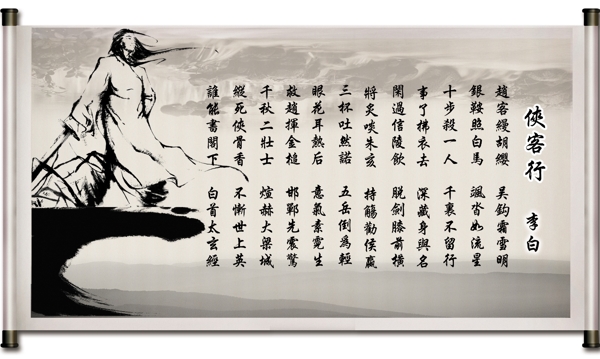 俠客行 李白
趙客縵胡纓 吴鈎霜雪明
銀鞍照白馬 颯沓如流星
十步殺一人 千裏不留行
事了拂衣去 深藏身與名
閑過信陵飲 脱劍膝前横
將炙啖朱亥 持觴勸侯嬴
三杯吐然諾 五岳倒爲輕
眼花耳熱后 意氣素霓生
救趙揮金槌 邯鄲先震驚
千秋二壯士 煊赫大梁城
縱死俠骨香 不慚世上英
誰能書閣下 白首太玄經